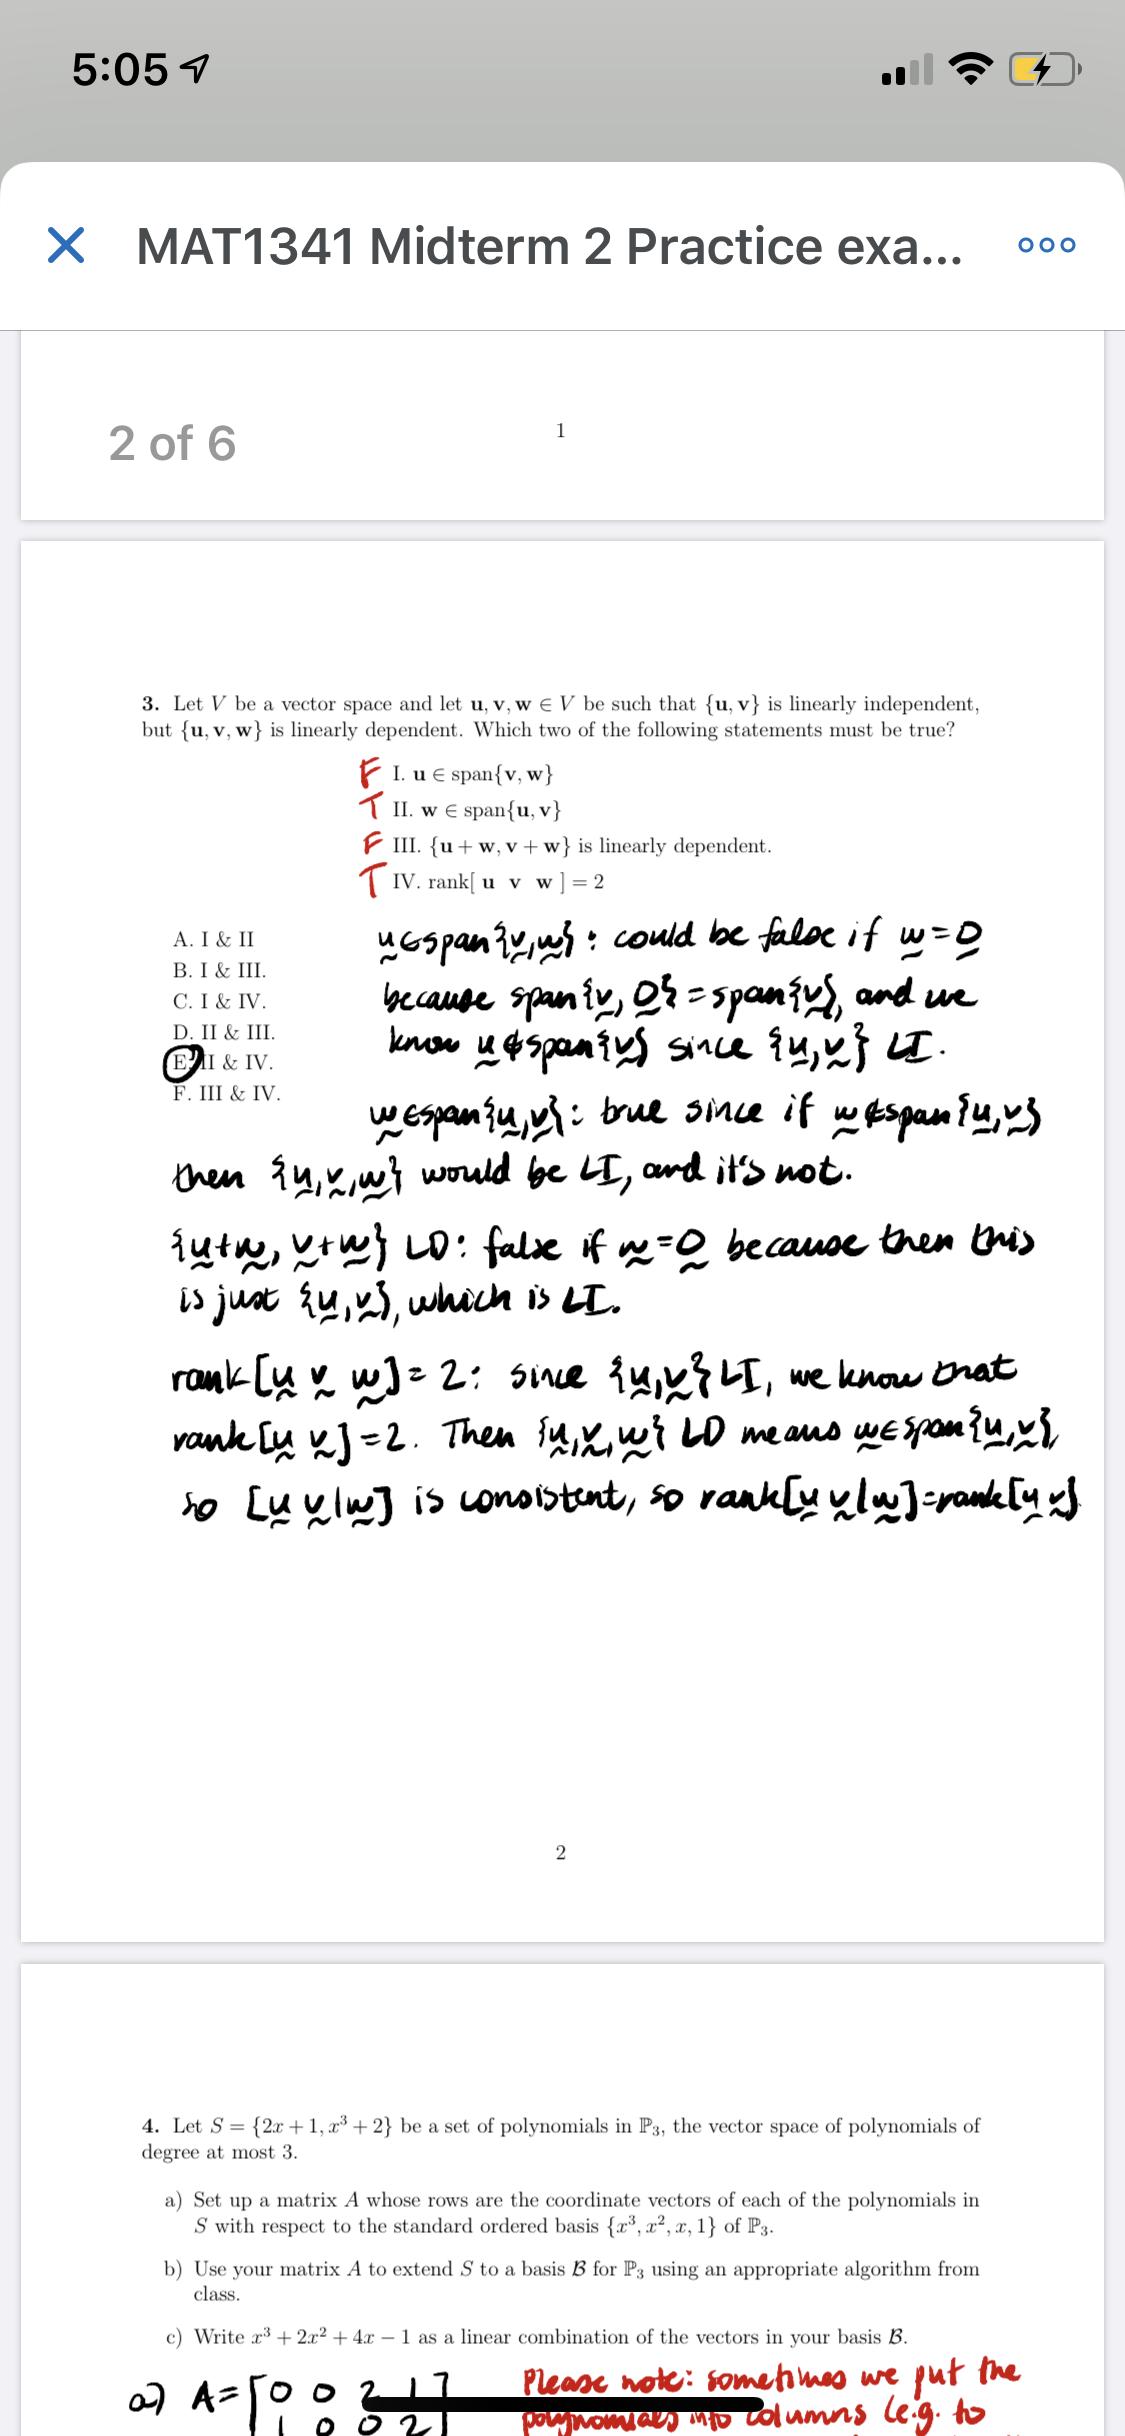 5:05
MAT1341 Midterm 2 Practice exa...
2 of 6
1
3. Let V be a vector space and let u, v, w ∈ V be such that {u, v} is linearly independent,
but {u, v, w} is linearly dependent. Which two of the following statements must be true?
F I. u ∈ span{v, w}
T II. w ∈ span{u, v}
F III. {u + w, v + w} is linearly dependent.
T IV. rank[ u v w ] = 2
A. I & II
B. I & III.
C. I & IV.
D. II & III.
E. II & IV.
F. III & IV.
u∈span{v,w}: could be false if w=0
because span{v, 0} = span{v}, and we
know u∉span{v} since {u,v} LI.
w∈span{u,v}: true since if w∉span{u,v}
then {u,v,w} would be LI, and it's not.
{u+w, v+w} LD: false if w=0 because then this
is just {u,v}, which is LI.
rank[u v w]=2: since {u,v} LI, we know that
rank[u v]=2. Then {u,v,w} LD means w∈span{u,v},
so [u v|w] is consistent, so rank[u v|w]=rank[u v].
2
4. Let S = {2x + 1, x³ + 2} be a set of polynomials in ℙ₃, the vector space of polynomials of
degree at most 3.
a) Set up a matrix A whose rows are the coordinate vectors of each of the polynomials in
S with respect to the standard ordered basis {x³, x², x, 1} of ℙ₃.
b) Use your matrix A to extend S to a basis ℬ for ℙ₃ using an appropriate algorithm from
class.
c) Write x³ + 2x² + 4x − 1 as a linear combination of the vectors in your basis ℬ.
a) A = [0 0 2 1]
1 0 0 2]
Please note: sometimes we put the
polynomials into columns (e.g. to